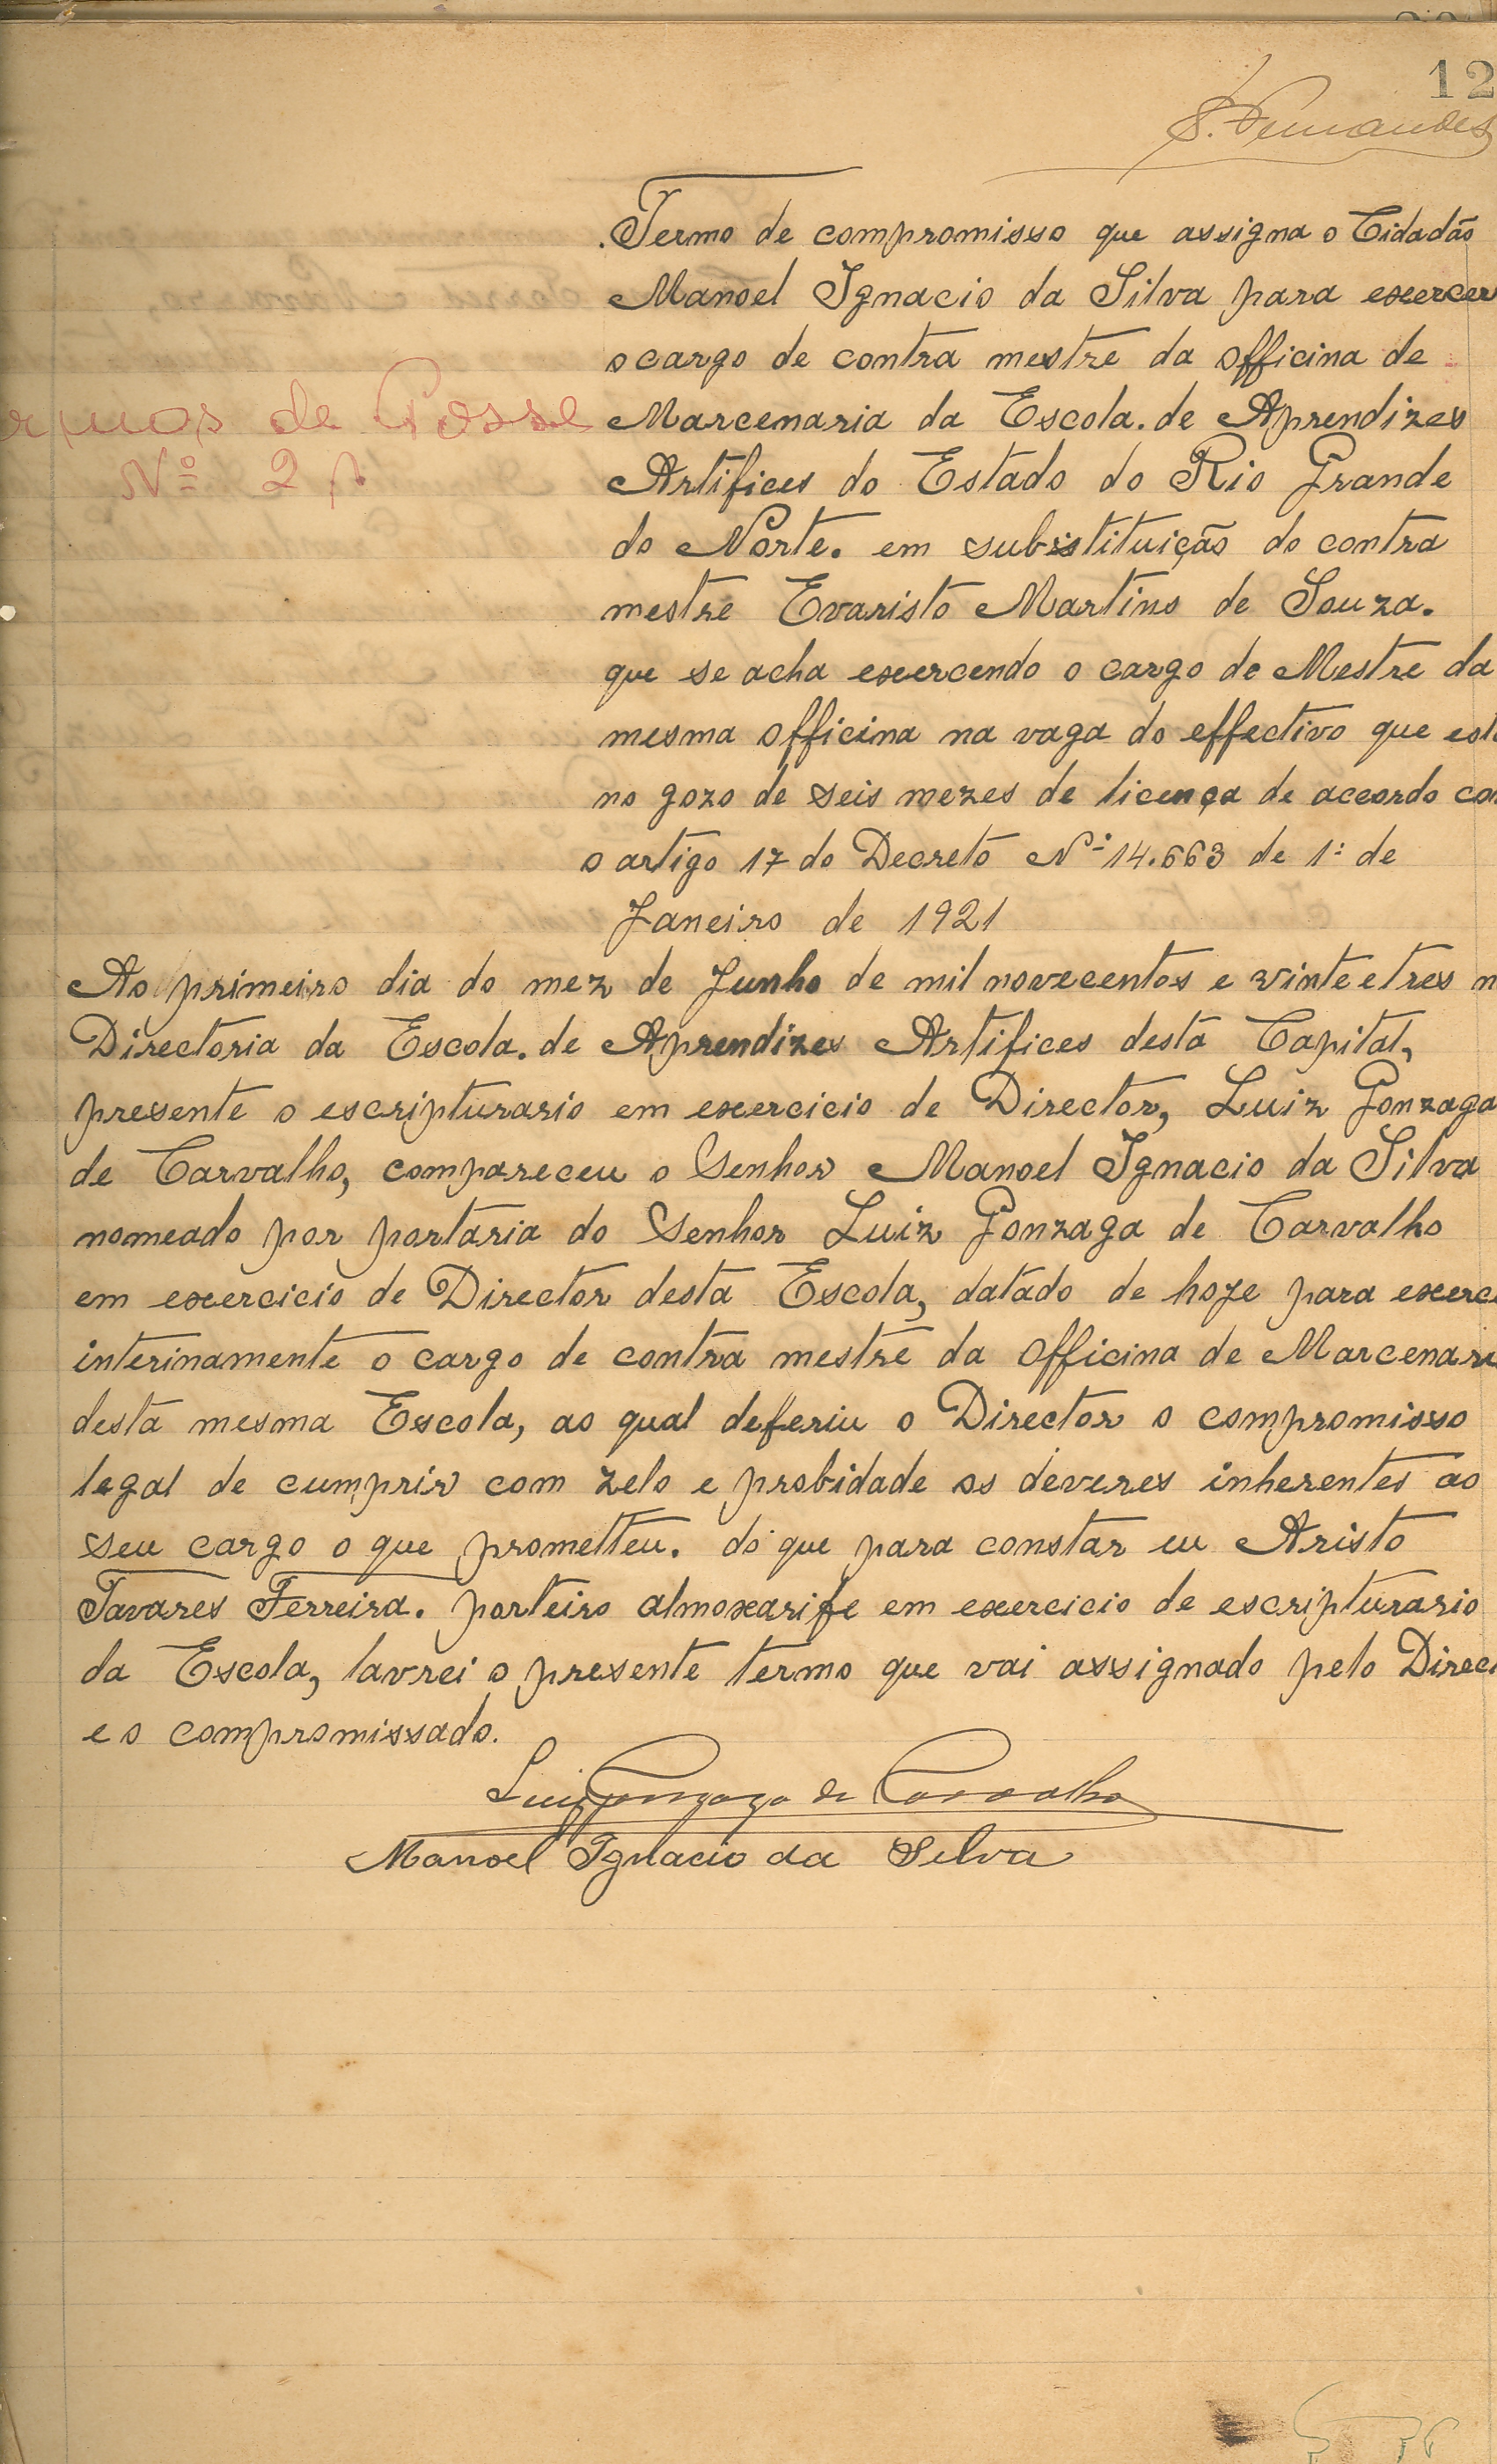 12
S. Fernandes
Termo de compromisso que assigna o Cidadão
Manoel Ignacio da Silva para exercer
o cargo de contra mestre da officina de
Marcenaria da Escola. de Aprendizes
Artifices do Estado do Rio Grande
do Norte. em substituição do contra
mestre Evaristo Martins de Souza.
que se acha exercendo o cargo de Mestre da
mesma officina na vaga do effectivo que est
no gozo de seis mezes de licença de accordo co
o artigo 17 do Decreto Nº 14.663 de 1º de
Janeiro de 1921
ermos de Posse
Nº 2
Ao primeiro dia do mez de Junho de mil novecentos e vinte e tres n
Directoria da Escola. de Aprendizes Artifices desta Capital,
presente o escripturario em exercicio de Director, Luiz Gonzaga
de Carvalho, compareceu o Senhor Manoel Ignacio da Silva
nomeado por portaria do Senhor Luiz Gonzaga de Carvalho
em exercicio de Director desta Escola, datado de hoje para exerce
interinamente o cargo de contra mestre da officina de Marcenari
desta mesma Escola, ao qual deferiu o Director o compromisso
legal de cumprir com zelo e probidade os deveres inherentes ao
seu cargo o que prometteu. do que para constar eu Aristo
Tavares Ferreira. porteiro almoxarife em exercicio de escripturario
da Escola, lavrei o presente termo que vai assignado pelo Direc
e o compromissado.
Luiz Gonzaga de Carvalho
Manoel Ignacio da Silva